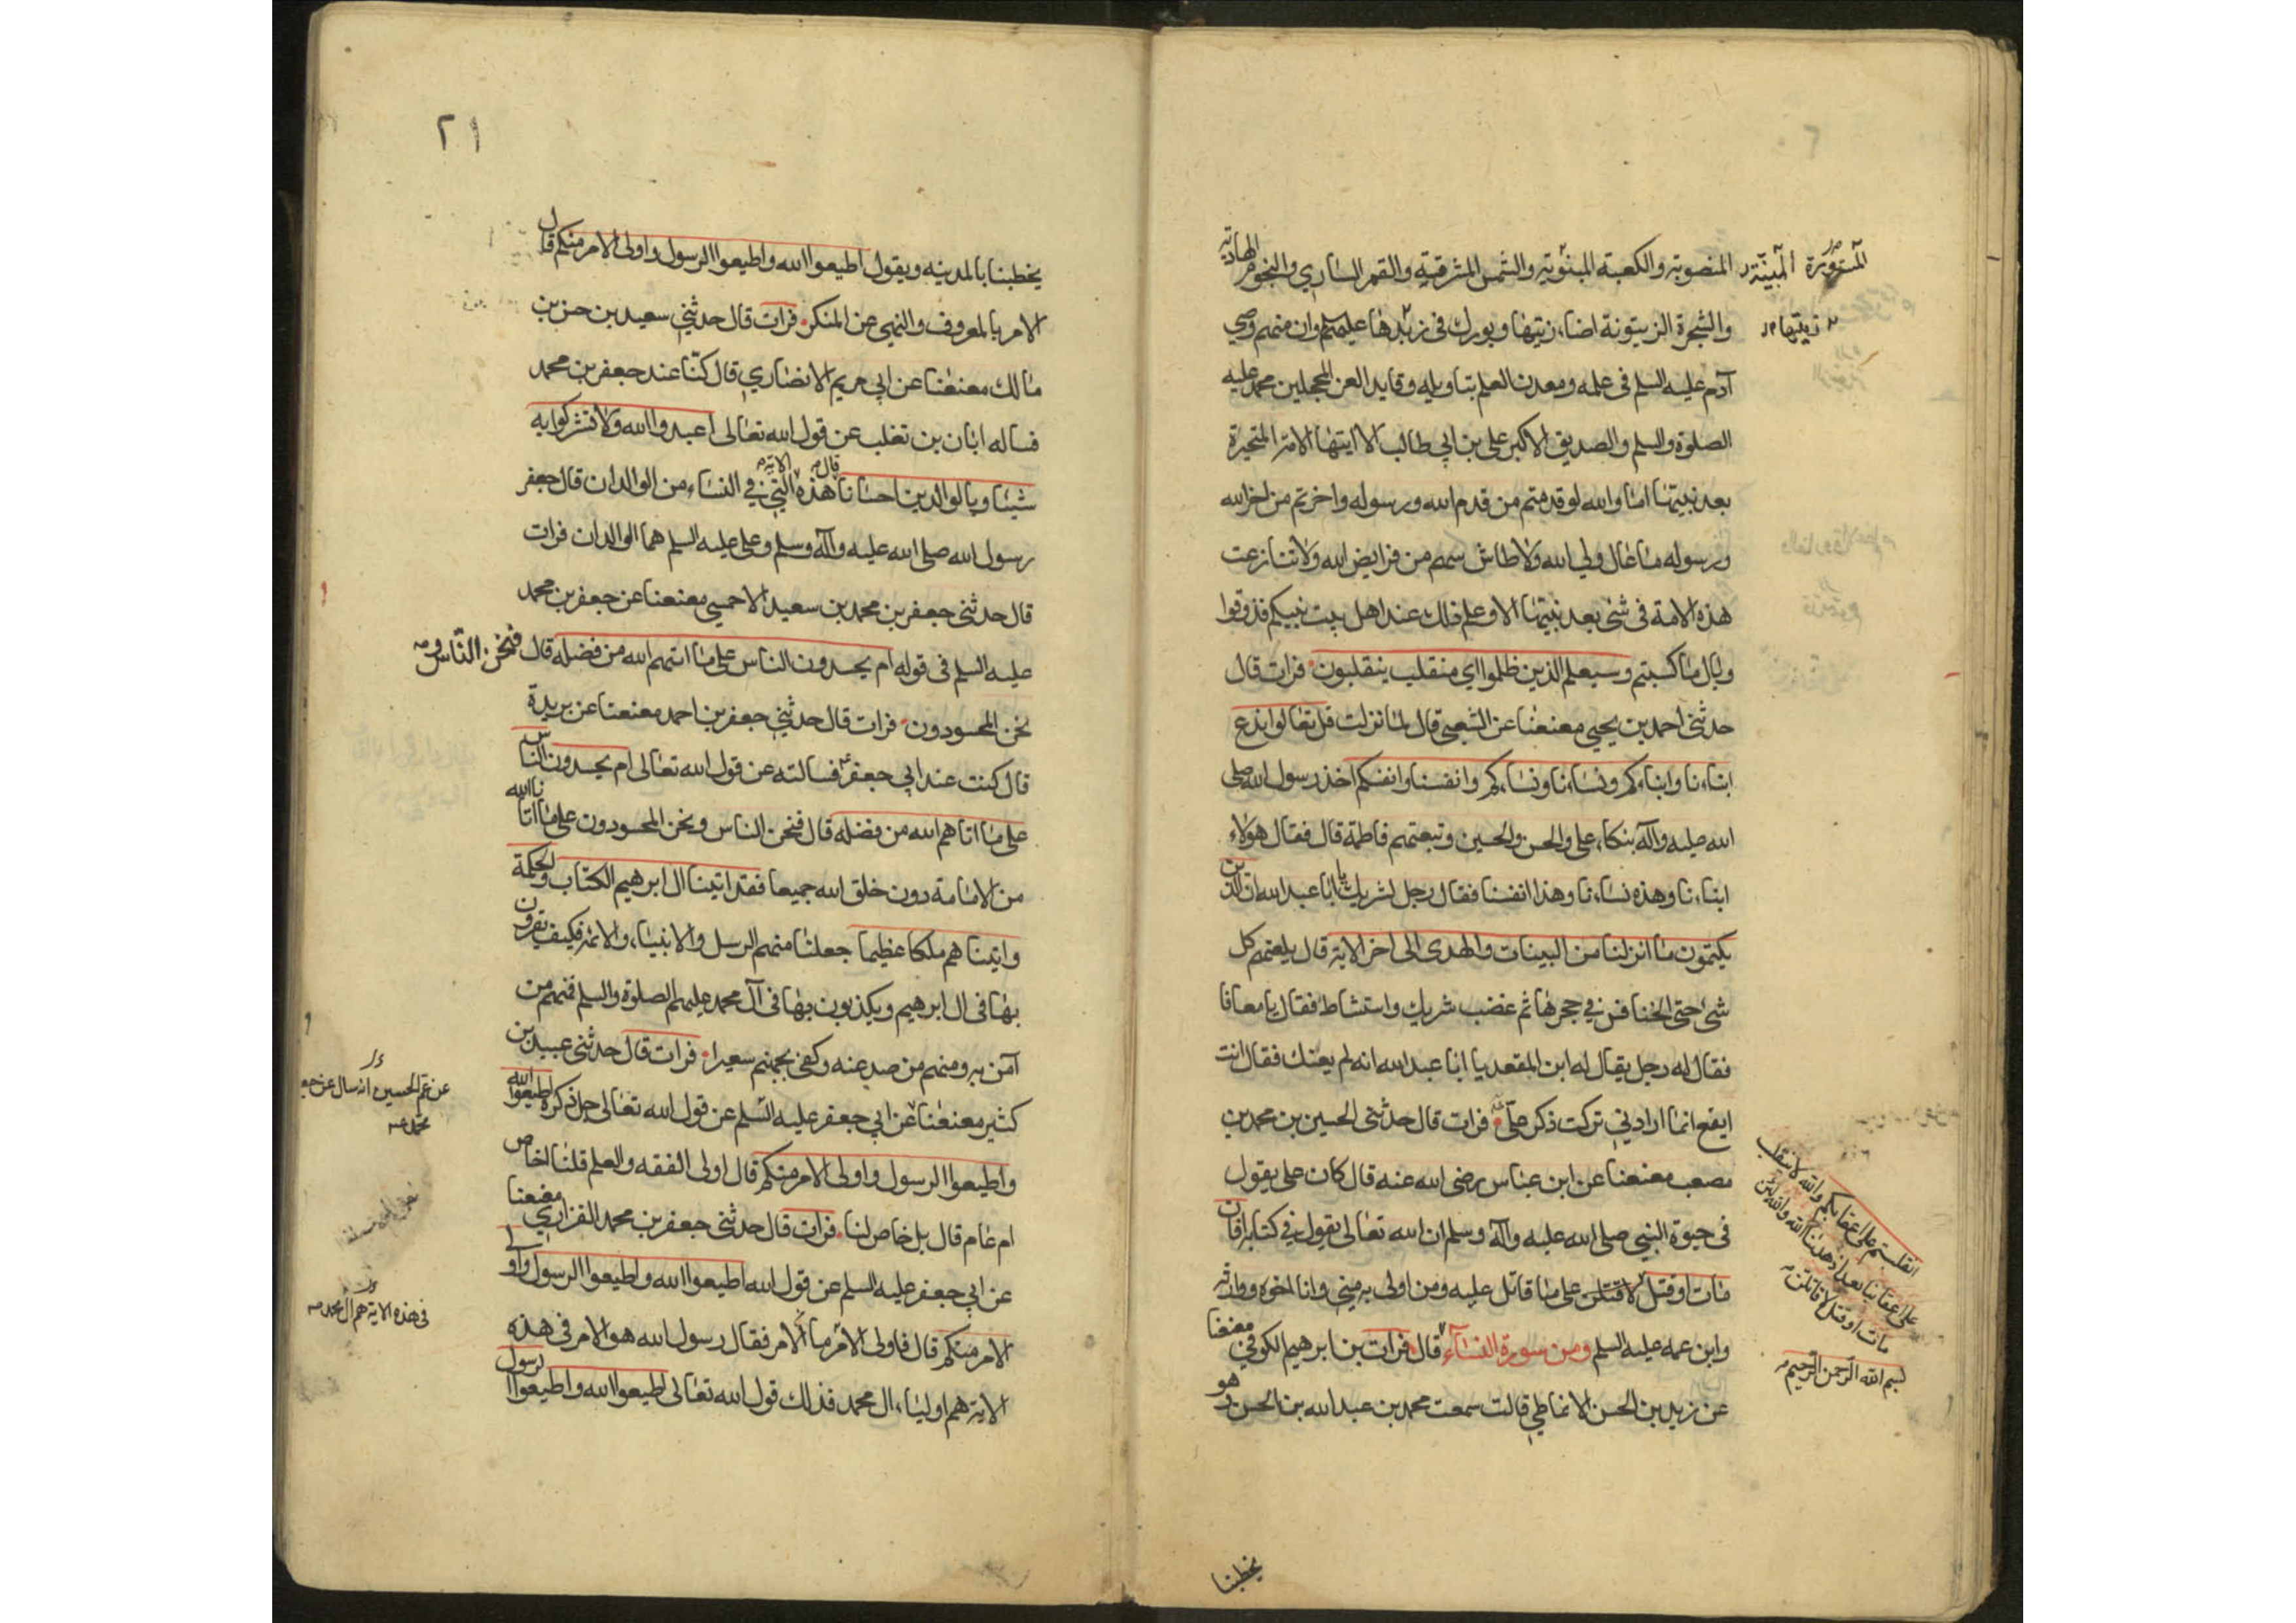 المنصوبة والكعبة المبنوية والشمس المشرقية والقمر الساري والنجوم الهادية
والشجرة الزيتونة اضاء زيتها وبورك في زبدها عليهم وان منهم وصي
آدم عليه السلم في علمه ومعدن العلم بتاويله وقايد الغر المحجلين محمد عليه
الصلوة والسلم والصديق الاكبر علي بن ابي طالب الا ايتها الامة المتحيرة
بعد نبيتها اما والله لو قدمتم من قدم الله ورسوله واخرتم من اخر الله
ورسوله ما عال ولي الله ولا طاش سهم من فرايض الله ولا تنازعت
هذه الامة في شئ بعد نبيتها الا وعلم ذلك عند اهل بيت نبيكم فذوقوا
وبال ما كسبتم وسيعلم الذين ظلموا اي منقلب ينقلبون فرات قال
حدثني احمد بن يحيى معنعنا عن الشعبي قال لما نزلت قل تعالوا ندع
ابناءنا وابناءكم ونساءنا ونساءكم وانفسنا وانفسكم اخذ رسول الله صلى
الله عليه وآله بتكاء علي والحسن والحسين وتبعتهم فاطمة قال فقال هؤلاء
ابناءنا وهذه نساءنا وهذا انفسنا فقال رجل لشريك يا ابا عبد الله ان الذين
يكتمون ما انزلنا من البينات والهدى الى اخر الاية قال يلعنهم كل
شئ حتى الخنافس في جحرها ثم غضب شريك واستشاط فقال يا معافا
فقال له رجل يقال له ابن المقعد يا ابا عبد الله انه لم يعنك فقال انت
ايقع انما ارادني تركت ذكر علي فرات قال حدثني الحسين بن محمد بن
مصعب معنعنا عن ابن عباس رضى الله عنه قال كان علي يقول
في حيوة النبي صلى الله عليه وآله وسلم ان الله تعالى يقول في كتابه افان
مات او قتل لاقتلن على ما قاتل عليه ومن اولى به مني وانا اخوه ووارثه
وابن عمه عليه السلم ومن سورة النساء قال فرات بن ابرهيم الكوفي معنعنا
عن زيد بن الحسن الانماطي قالت سمعت محمد بن عبد الله بن الحسن وهو
المبينة
زيتها
انقلبتم على اعقابكم والله لا ننقلب
على اعقابنا بعد اذ هدانا الله والله لئن
مات او قتل لاقاتلن
بسم الله الرحمن الرحيم
يخطبنا
٢١
يخطبنا بالمدينه ويقول اطيعوا الله واطيعوا الرسول واولى الامر منكم قال
الامر بالمعروف والنهي عن المنكر فرات قال حدثني سعيد بن حسن بن
مالك معنعنا عن ابي مريم الانصاري قال كنا عند جعفر بن محمد
فساله ابان بن تغلب عن قول الله تعالى اعبدوا الله ولا تشركوا به
شيئا وبالوالدين احسانا قال هذه الاية التي في النساء من الوالدان قال جعفر
رسول الله صلى الله عليه وآله وسلم وعلي عليه السلم هما الوالدان فرات
قال حدثني جعفر بن محمد بن سعيد الاحمسي معنعنا عن جعفر بن محمد
عليه السلم في قوله ام يحسدون الناس على ما اتيهم الله من فضله قال فنحن الناس و
نحن المحسودون فرات قال حدثني جعفر بن احمد معنعنا عن بريدة
قال كنت عند ابي جعفر فسالته عن قول الله تعالى ام يحسدون الناس
على ما اتاهم الله من فضله قال فنحن الناس ونحن المحسودون على ما اتانا الله
من الامامة دون خلق الله جميعا فقد اتينا ال ابرهيم الكتاب والحكمة
واتيناهم ملكا عظيما جعلنا منهم الرسل والانبياء والائمة فكيف يقرون
بها في ال ابرهيم ويكذبون بها في آل محمد عليهم الصلوة والسلم فمنهم من
آمن به ومنهم من صد عنه وكفى بجهنم سعيرا فرات قال حدثني عبيد بن
كثير معنعنا عن ابي جعفر عليه السلم عن قول الله تعالى جل ذكره اطيعوا الله
واطيعوا الرسول واولى الامر منكم قال اولى الفقه والعلم قلنا اخاص
ام عام قال بل خاص لنا فرات قال حدثني جعفر بن محمد الفزاري معنعنا
عن ابي جعفر عليه السلم عن قول الله اطيعوا الله واطيعوا الرسول واولي
الامر منكم قال فاولى الامر ما الامر فقال رسول الله هو الامر في هذه
الاية هم اولياء ال محمد فذلك قول الله تعالى اطيعوا الله واطيعوا الرسول
عن عم الحسين انه سال عن جعفر
محمد
في هذه الاية هم ال محمد